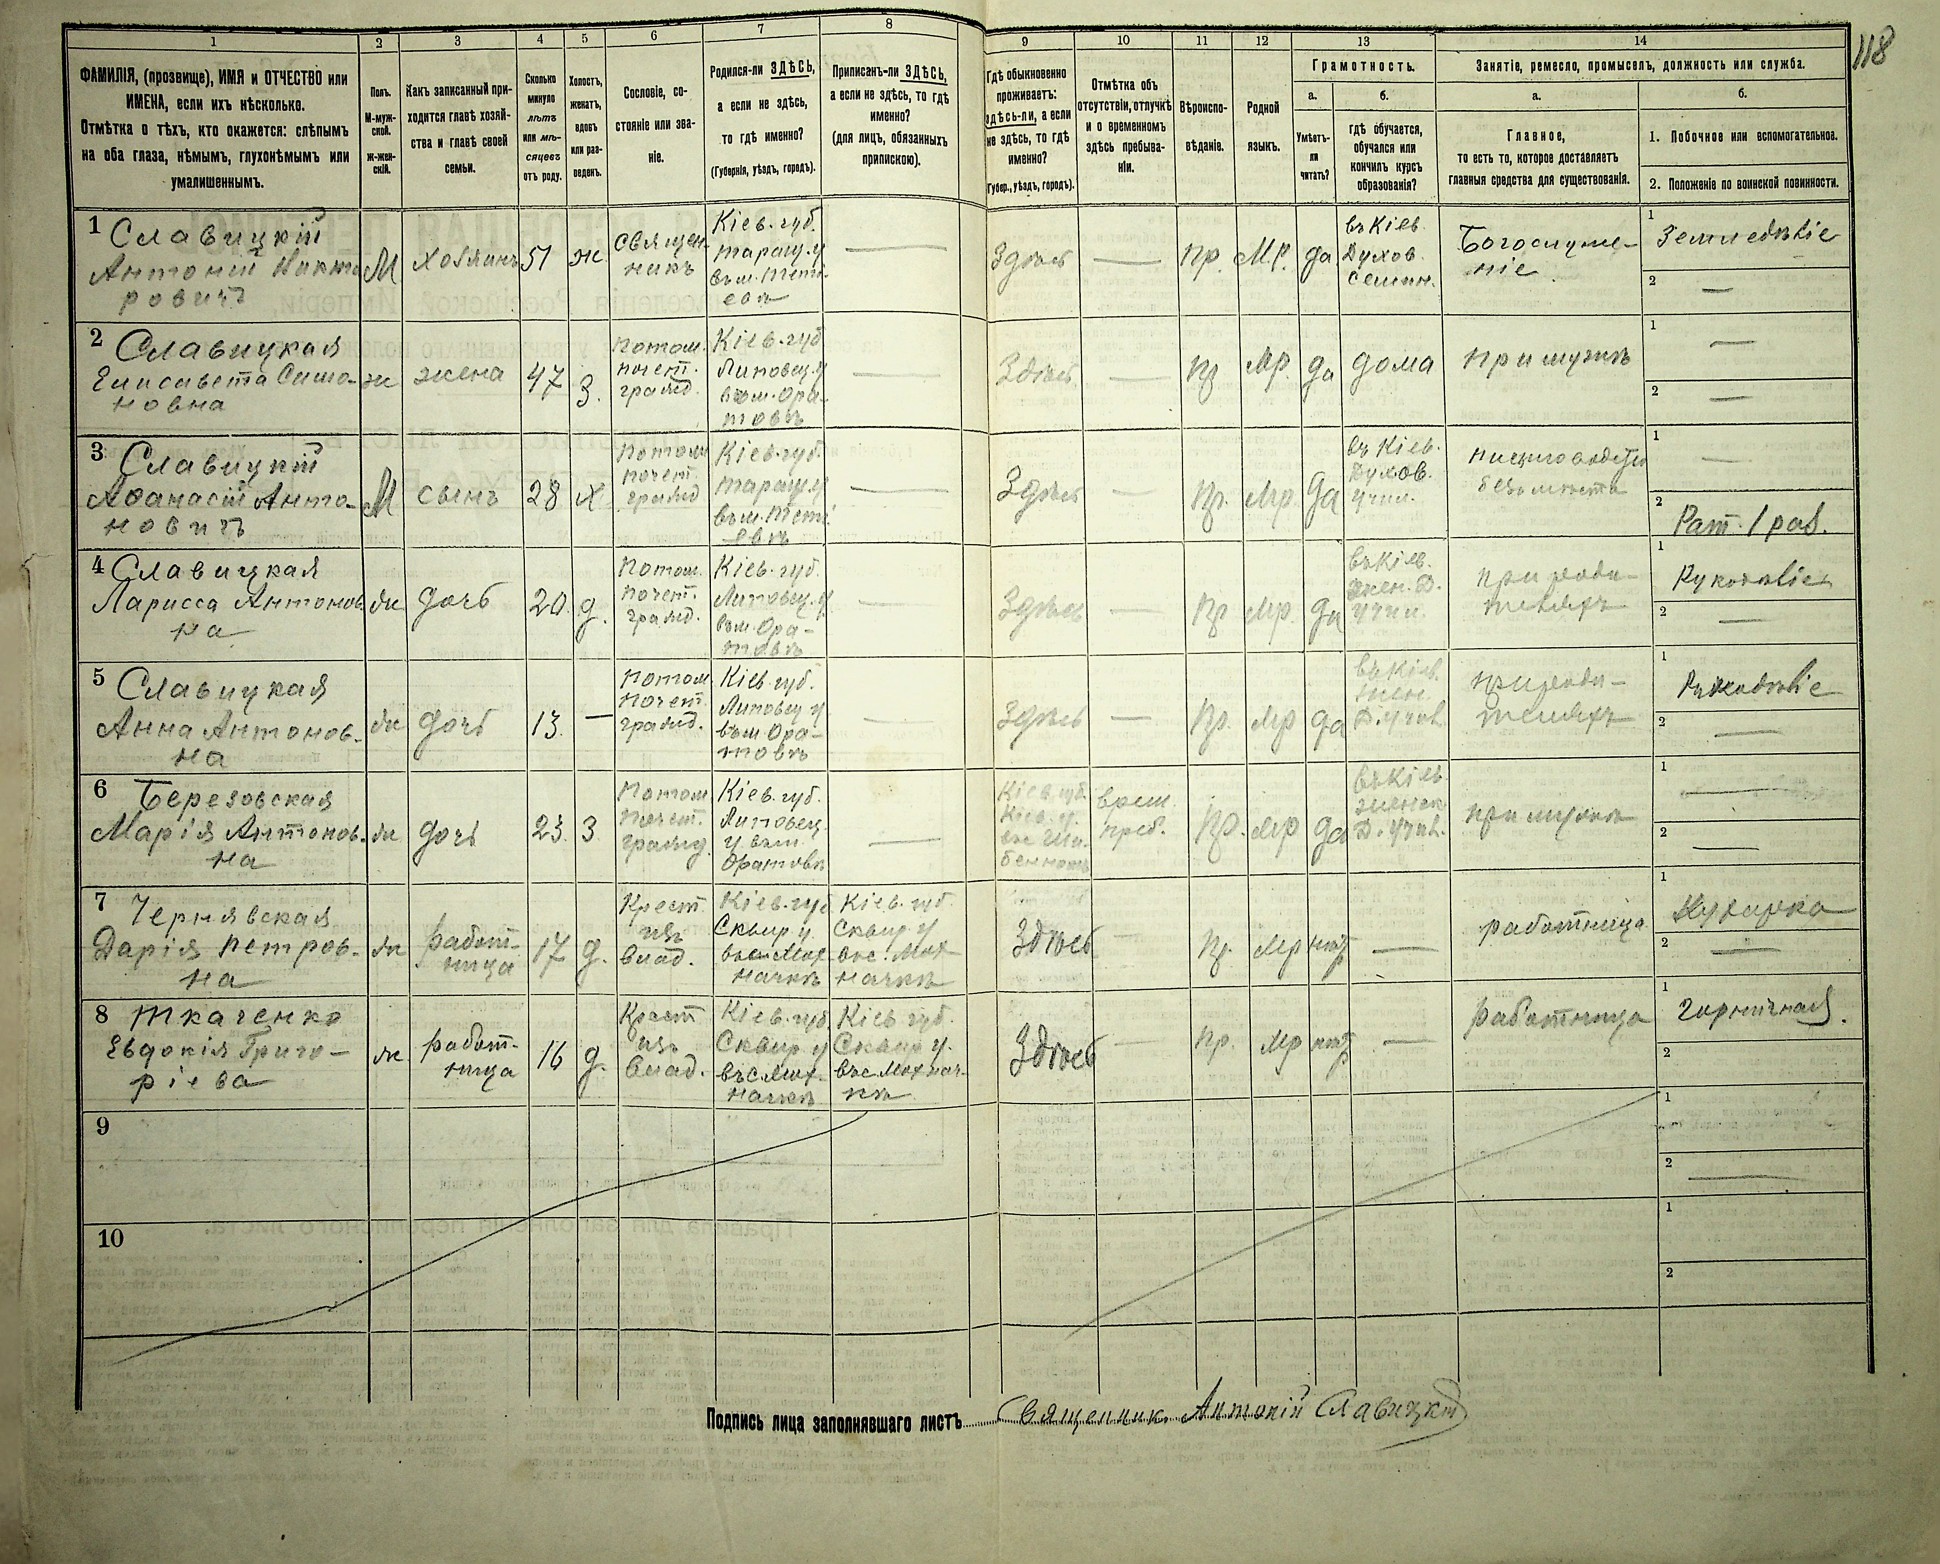 118
1
2
3
4
5
6
7
8
9
10
11
12
13
14
ФАМИЛІЯ, (прозвище), ИМЯ и ОТЧЕСТВО или
ИМЕНА, если ихъ нѣсколько.
Отмѣтка о тѣхъ, кто окажется: слѣпымъ
на оба глаза, нѣмымъ, глухонѣмымъ или
умалишеннымъ.
Полъ.
М-муж-
ской.
ж-жен-
скій.
Какъ записанный при-
ходится главѣ хозяй-
ства и главѣ своей
семьи.
Сколько
минуло
лѣтъ
или мѣ-
сяцевъ
отъ роду.
Холостъ,
женатъ,
вдовъ
или раз-
веденъ.
Сословіе, со-
стояніе или зва-
ніе.
Родился-ли ЗДѢСЬ,
а если не здѣсь,
то гдѣ именно?
(Губернія, уѣздъ, городъ).
Приписанъ-ли ЗДѢСЬ,
а если не здѣсь, то гдѣ
именно?
(для лицъ, обязанныхъ
припискою).
Гдѣ обыкновенно
проживаетъ:
здѣсь-ли, а если
не здѣсь, то гдѣ
именно?
(Губер., уѣздъ, городъ).
Отмѣтка объ
отсутствіи, отлучкѣ
и о временномъ
здѣсь пребыва-
ніи.
Вѣроиспо-
вѣданіе.
Родной
языкъ.
Грамотность.
а.
Умѣетъ-
ли
читать?
б.
гдѣ обучается,
обучался или
кончилъ курсъ
образованія?
Занятіе, ремесло, промыселъ, должность или служба.
а.
Главное,
то есть то, которое доставляетъ
главныя средства для существованія.
б.
1. Побочное или вспомогательное.
2. Положеніе по воинской повинности.
1 Славицкій
Антоній Викто
ровичъ
М
хозяинъ
51
ж
Священ-
никъ
Кіев. губ.
Таращ. у
въ м. Тетi-
евѣ
Здѣсь
Пр.
Мр.
да
въ Кіев.
Духов.
Семин.
Богослуже-
ніе
1
Земледѣліе
2
2 Славицкая
Елисавета Симо-
новна
ж
жена
47
З.
Потом.
почет.
гражд.
Кіев. губ
Липовец. у
въ м. Ора-
товѣ
Здѣсь
Пр
Мр.
да
дома
при мужѣ
1
2
3 Славицкій
Аѳанасій Анто-
новичъ
М
сынъ
28
Х
Потом
почет.
гражд
Кіев. губ.
Таращ. у
въ м. Тетi-
евѣ
Здѣсь
Пр.
Мр.
да
въ Кіев.
Духов.
учил.
1
2
Рат. 1 раз.
4 Славицкая
Ларисса Антонов
на
ж
дочь
20.
д.
Потом.
почет.
гражд.
Кіев. губ.
Липовец. у
въ м. Ора-
товѣ
Здѣсь
Пр
Мр.
да
въ Кіев.
жен. Д.
учил.
при роди-
теляхъ
1
Рукодѣліе
2
5 Славицкая
Анна Антонов-
на
ж
дочь
13.
Потом
почет.
гражд.
Кіев. губ.
Липовец у
въ м. Ора-
товѣ
Здѣсь
Пр.
Мр
да
въ Кіев.
жен.
Д. учил.
при роди-
теляхъ
1
Рукодѣліе
2
6 Березовская
Марія Антонов-
на
ж
дочь
23.
З
Потом
почет.
гражд
Кіев. губ.
Липовец
у. въ м.
Оратовѣ
Кіев. губ.
Кіев. у.
врем.
преб.
Пр.
Мр
да
въ Кіев
женск
Д. учил.
при мужѣ
1
2
7 Чернявская
Дарія Петров-
на
ж
работ-
ница
17
д.
Крест.
изъ
влад.
Кіев. губ
Сквир у.
въ с. Мох-
начкѣ
Кіев. губ.
Сквир. у
въ с. Мох-
начкѣ
Здѣсь
Пр.
Мр
нѣтъ
работница
1
Кухарка
2
8 Ткаченко
Евдокія Григо-
ріева
ж
работ-
ница
16
д.
Крест
изъ
влад.
Кіев. губ
Сквир у
въ с Мох-
начкѣ
Кіев губ.
Сквир у.
въ с. Мохнач-
кѣ
Здѣсь
Пр.
Мр
нѣтъ
работница
1
горничная.
2
9
1
2
10
1
2
Подпись лица заполнявшаго листъ Священник Антоній Славицкій